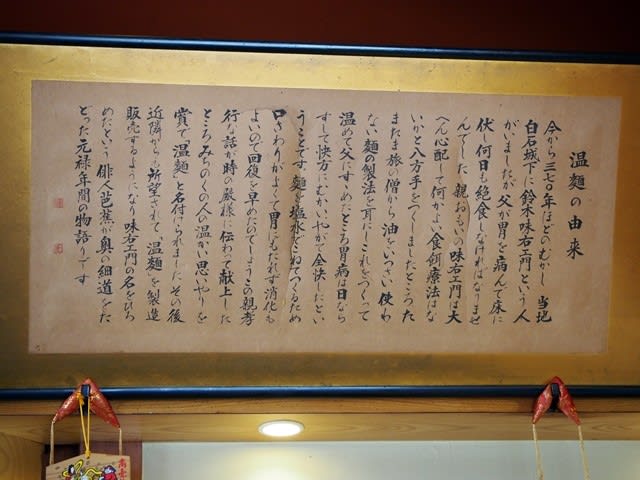 温麺の由来
今から三七〇年ほどのむかし 当地
白石城下に鈴木味右エ門という人
がいましたが父が胃を病んで床に
伏し何日も絶食しなければなりませ
んでした 親おもいの味右エ門は大
へん心配して何かよい食餌療法はな
いかと八方手をつくしましたところた
またま旅の僧から油をいっさい使わ
ない麺の製法を耳にしこれをつくって
温めて父にすゝめたところ胃病は日なら
ずして快方にむかいやがて全快したとい
うことです 麺を塩水でこねてつくるため
口ざわりがよくて胃にもたれず消化も
よいので回復を早めたのでしょうこの親孝
行な話が時の殿様に伝わって献上した
ところみちのくの人の温かい思いやりを
賞で温麺と名付けられましたその後
近隣からも所望されて温麺を製造
販売するようになり味右エ門の名をひろ
めたという 俳人芭蕉が奥の細道をた
どった元禄年間の物語りです